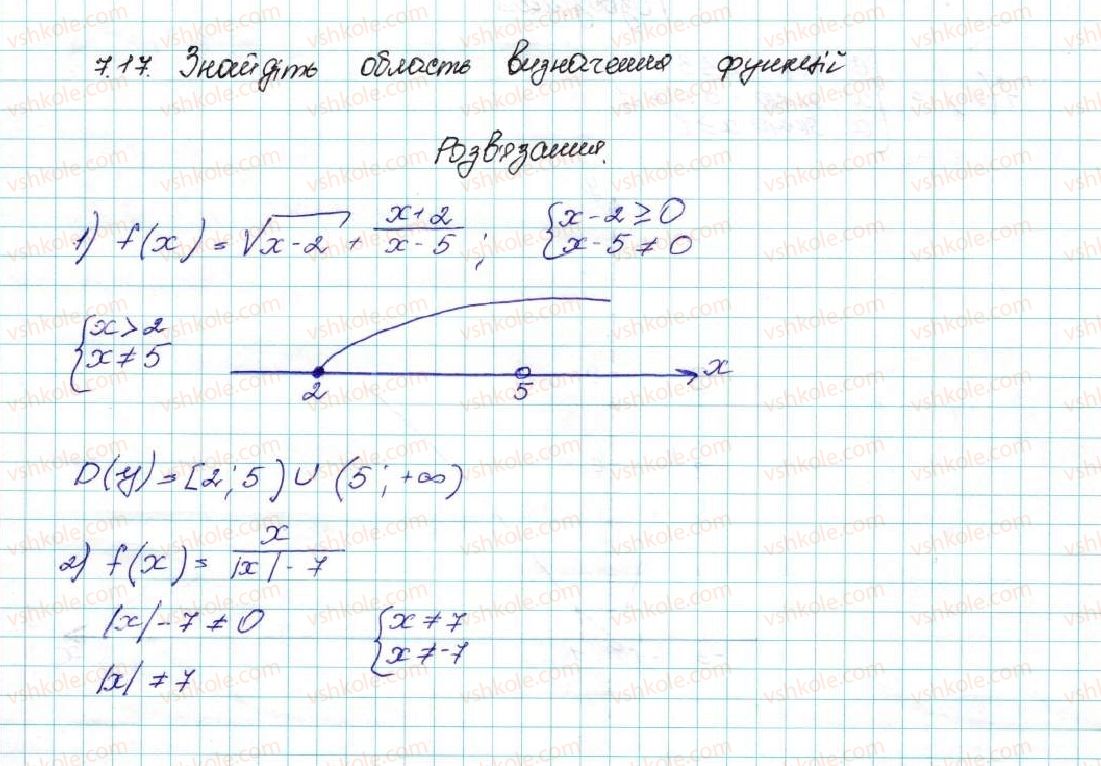 7.17. Знайдіть область визначення функцій
Розв'язання.
1) f(x) = √x-2 + x+2/x-5 ; {x-2 ≥ 0
{x-5 ≠ 0
{x > 2
{x ≠ 5
2 5 x
D(y) = [2; 5) ∪ (5; +∞)
2) f(x) = x/|x|-7
|x|-7 ≠ 0 {x ≠ 7
{x ≠ -7
|x| ≠ 7
vshkole.com